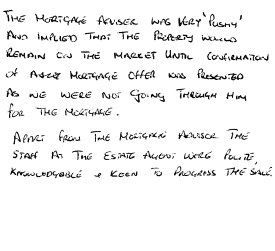 THE MORTGAGE ADVISER WAS VERY 'PUSHY'
AND IMPLIED THAT THE PROPERTY WOULD
REMAIN ON THE MARKET UNTIL CONFIRMATION
OF A MORTGAGE OFFER WAS PRESENTED
AS WE WERE NOT GOING THROUGH HIM
FOR THE MORTGAGE.
APART FROM THE MORTGAGE ADVISOR THE
STAFF AT THE ESTATE AGENT WERE POLITE,
KNOWLEDGABLE & KEEN TO PROGRESS THE SALE